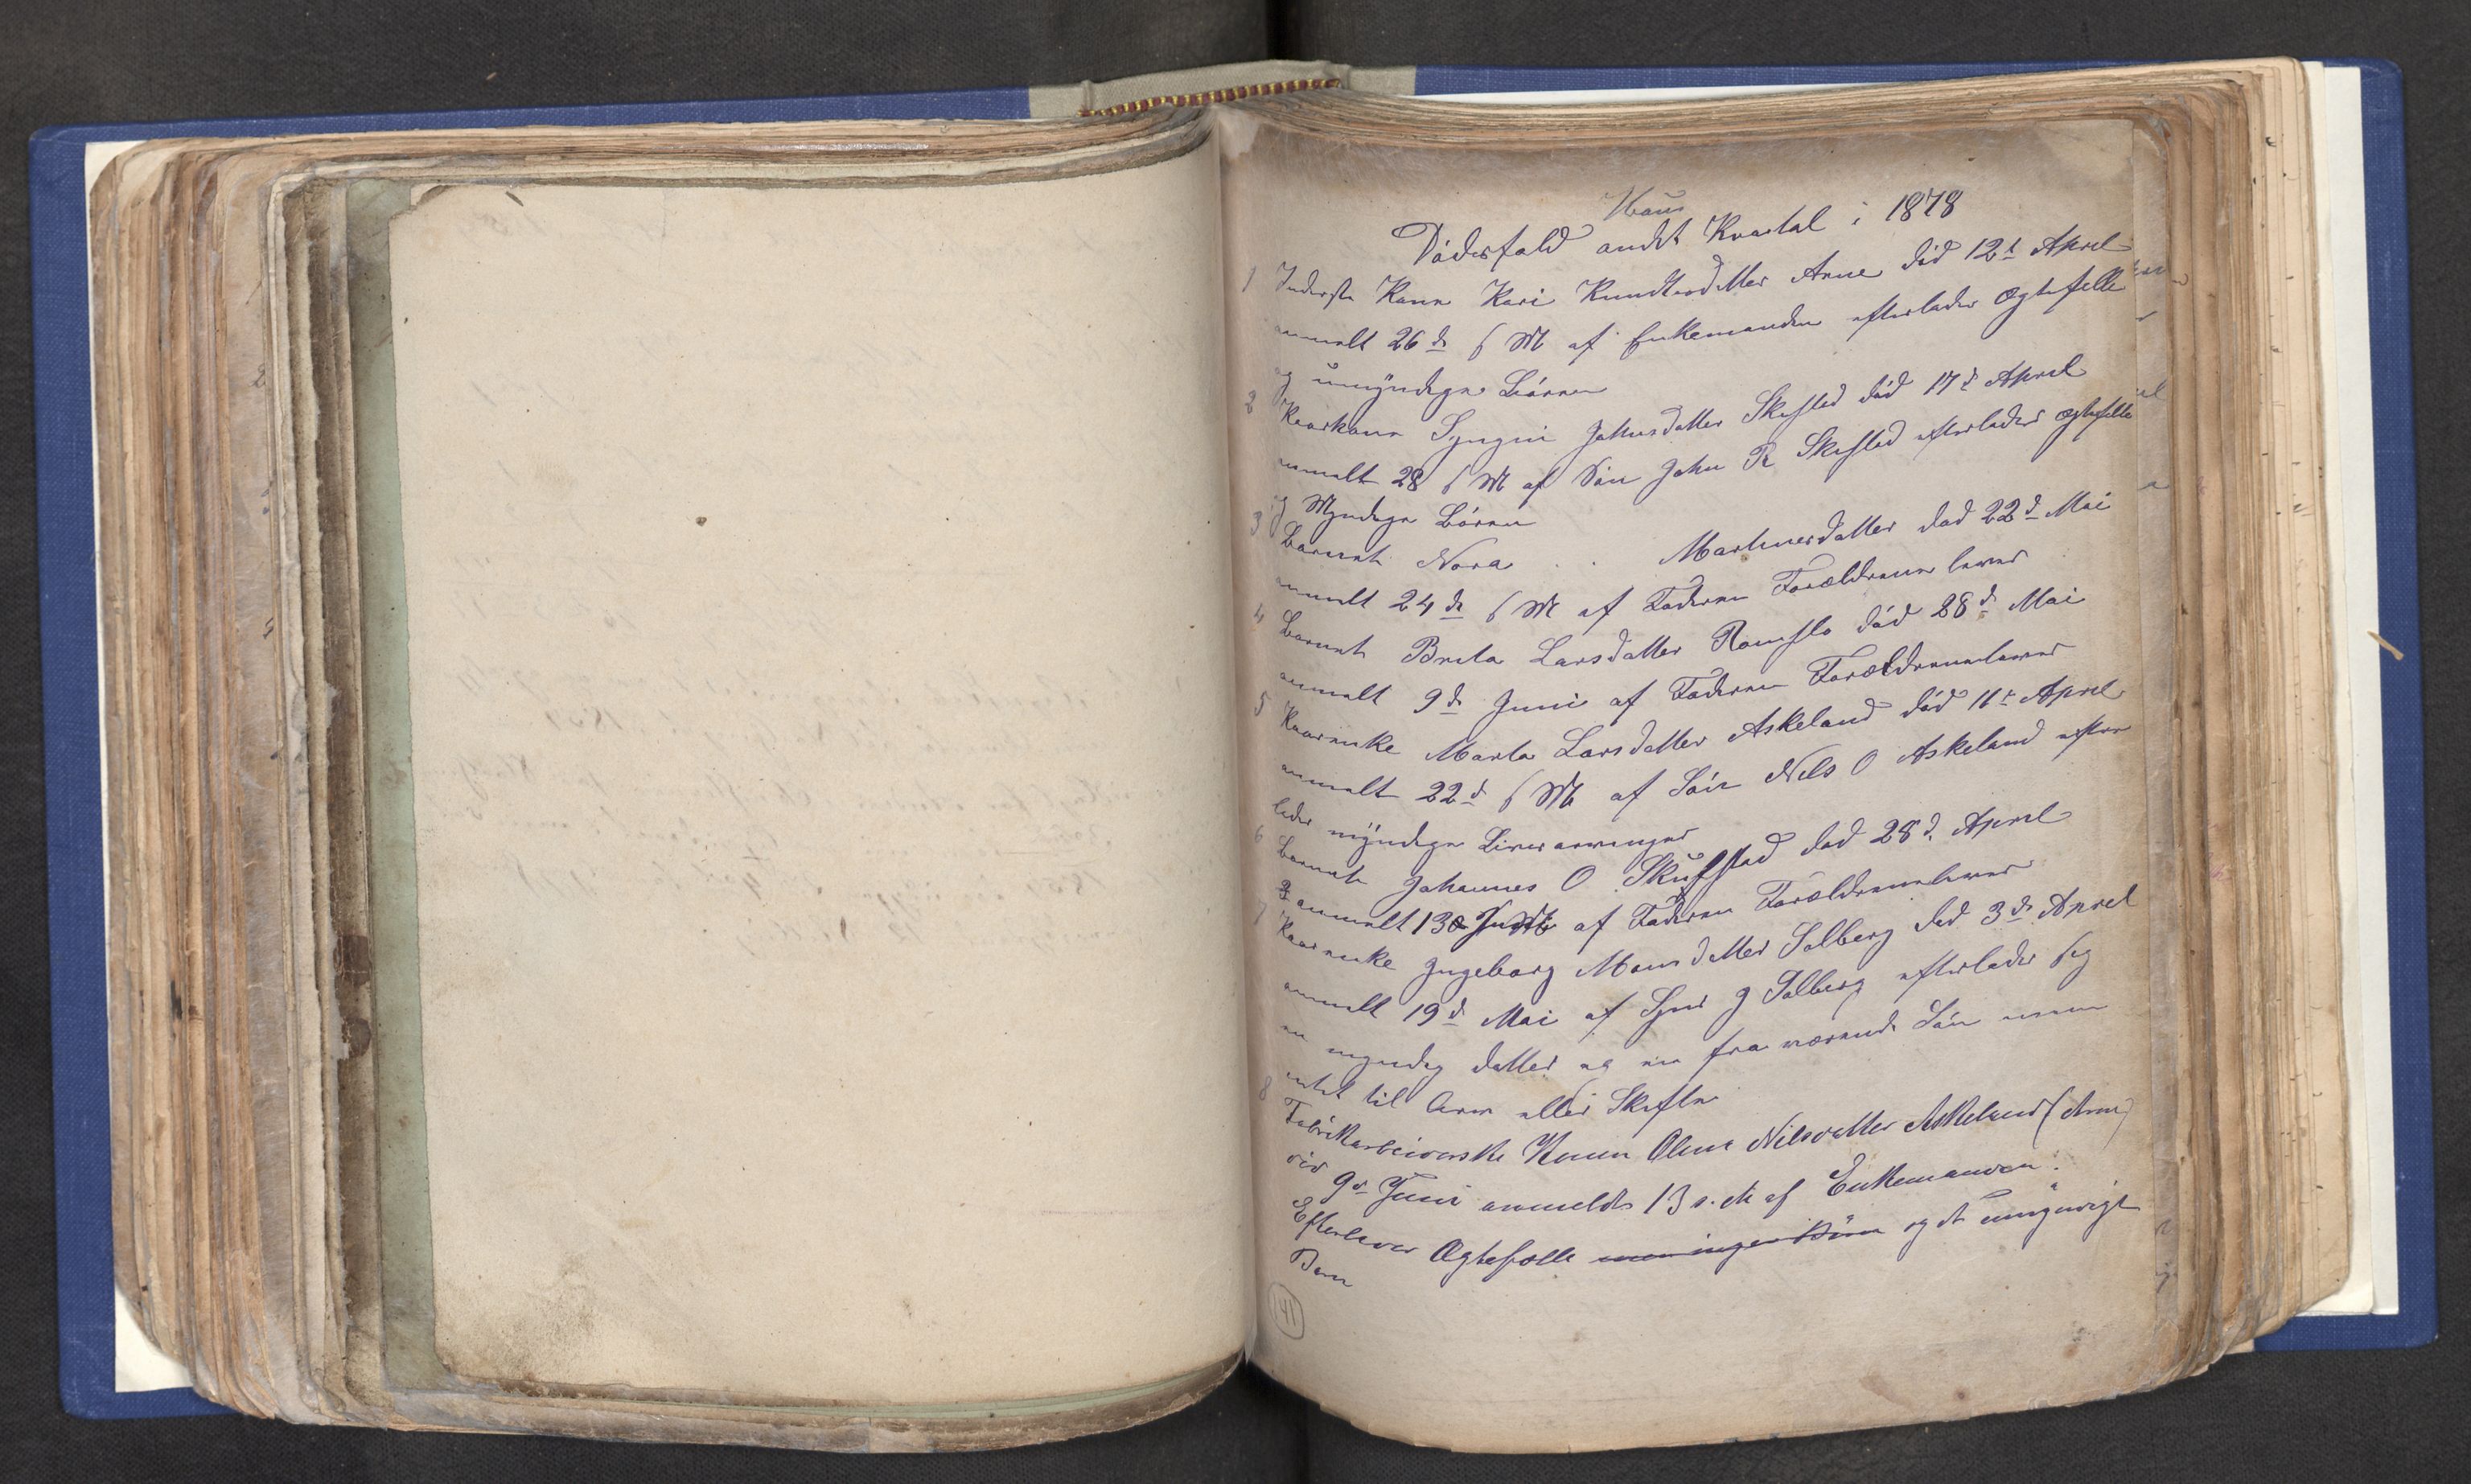 Haus
Dödsfald andet Kvartal i 1878
1 Inderste Kone Kari Knudtsdatter Arne död 12t April
anmelt 26de s M af Enkemanden efterlader Ægtefelle
og umyndige Börn
2 Kaarkone Syngni Johnsdatter Skufsted död 17d April
anmelt 28 s M af Sön John R Skufsted efterlader ægtefelle
og Myndige Börn
3 Barnet Nora . . Martinesdatter död 22d Mai
anmelt 24de s M af Faderen Forældrene lever
4 Barnet Brita Larsdatter Romslo död 28d Mai
anmelt 9de Juni af Faderen Forældrene lever
5 Kaarenke Marta Larsdatter Askeland död 11t April
anmelt 22d s M af Sön Nils O Askeland efter
lader myndige Livsarvinger
6 Barnet Johannes O Skufstad död 28d April
anmelt 13 af Faderen Forældrene lever
7 Kaarenke Ingeborg Monsdatter Solberg död 3de April
anmelt 19d Mai af Sjur J Solberg efterlader sig
en myndig datter og en fra værende Sön men
intet til Arv eller Skifte
8 Fabrikarbeiderske Konen Oline Nilsdatter Askeland (Arne)
död 9de Juni anmeldt 13 s. M af Enkemanden.
Efterlever Ægtefælle men ingen Börn og et umyndigt
Barn
141